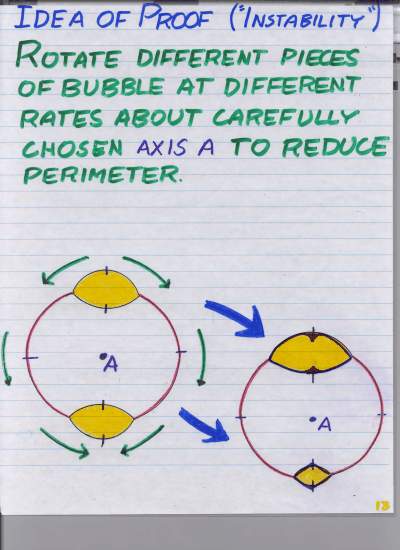 IDEA OF PROOF ("INSTABILITY")
ROTATE DIFFERENT PIECES
OF BUBBLE AT DIFFERENT
RATES ABOUT CAREFULLY
CHOSEN AXIS A TO REDUCE
PERIMETER.
A
A
13